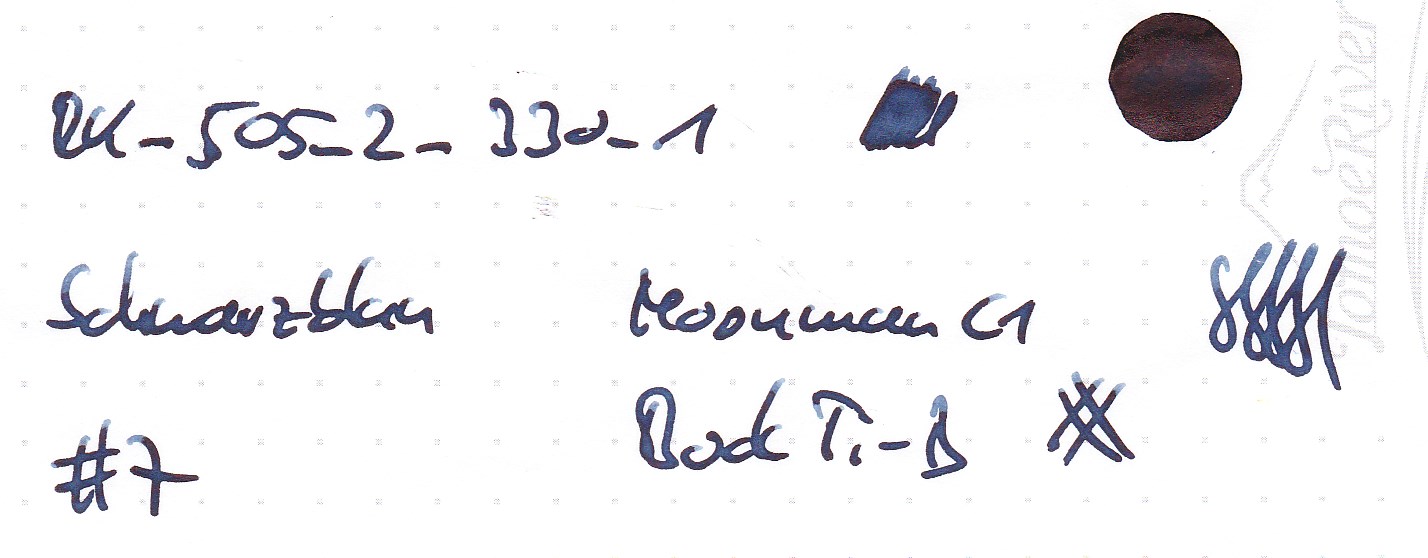 RK-505-2-330-1
Schwarzblau
Moonman C1
#7
Bock Ti-B
TomoeRiver